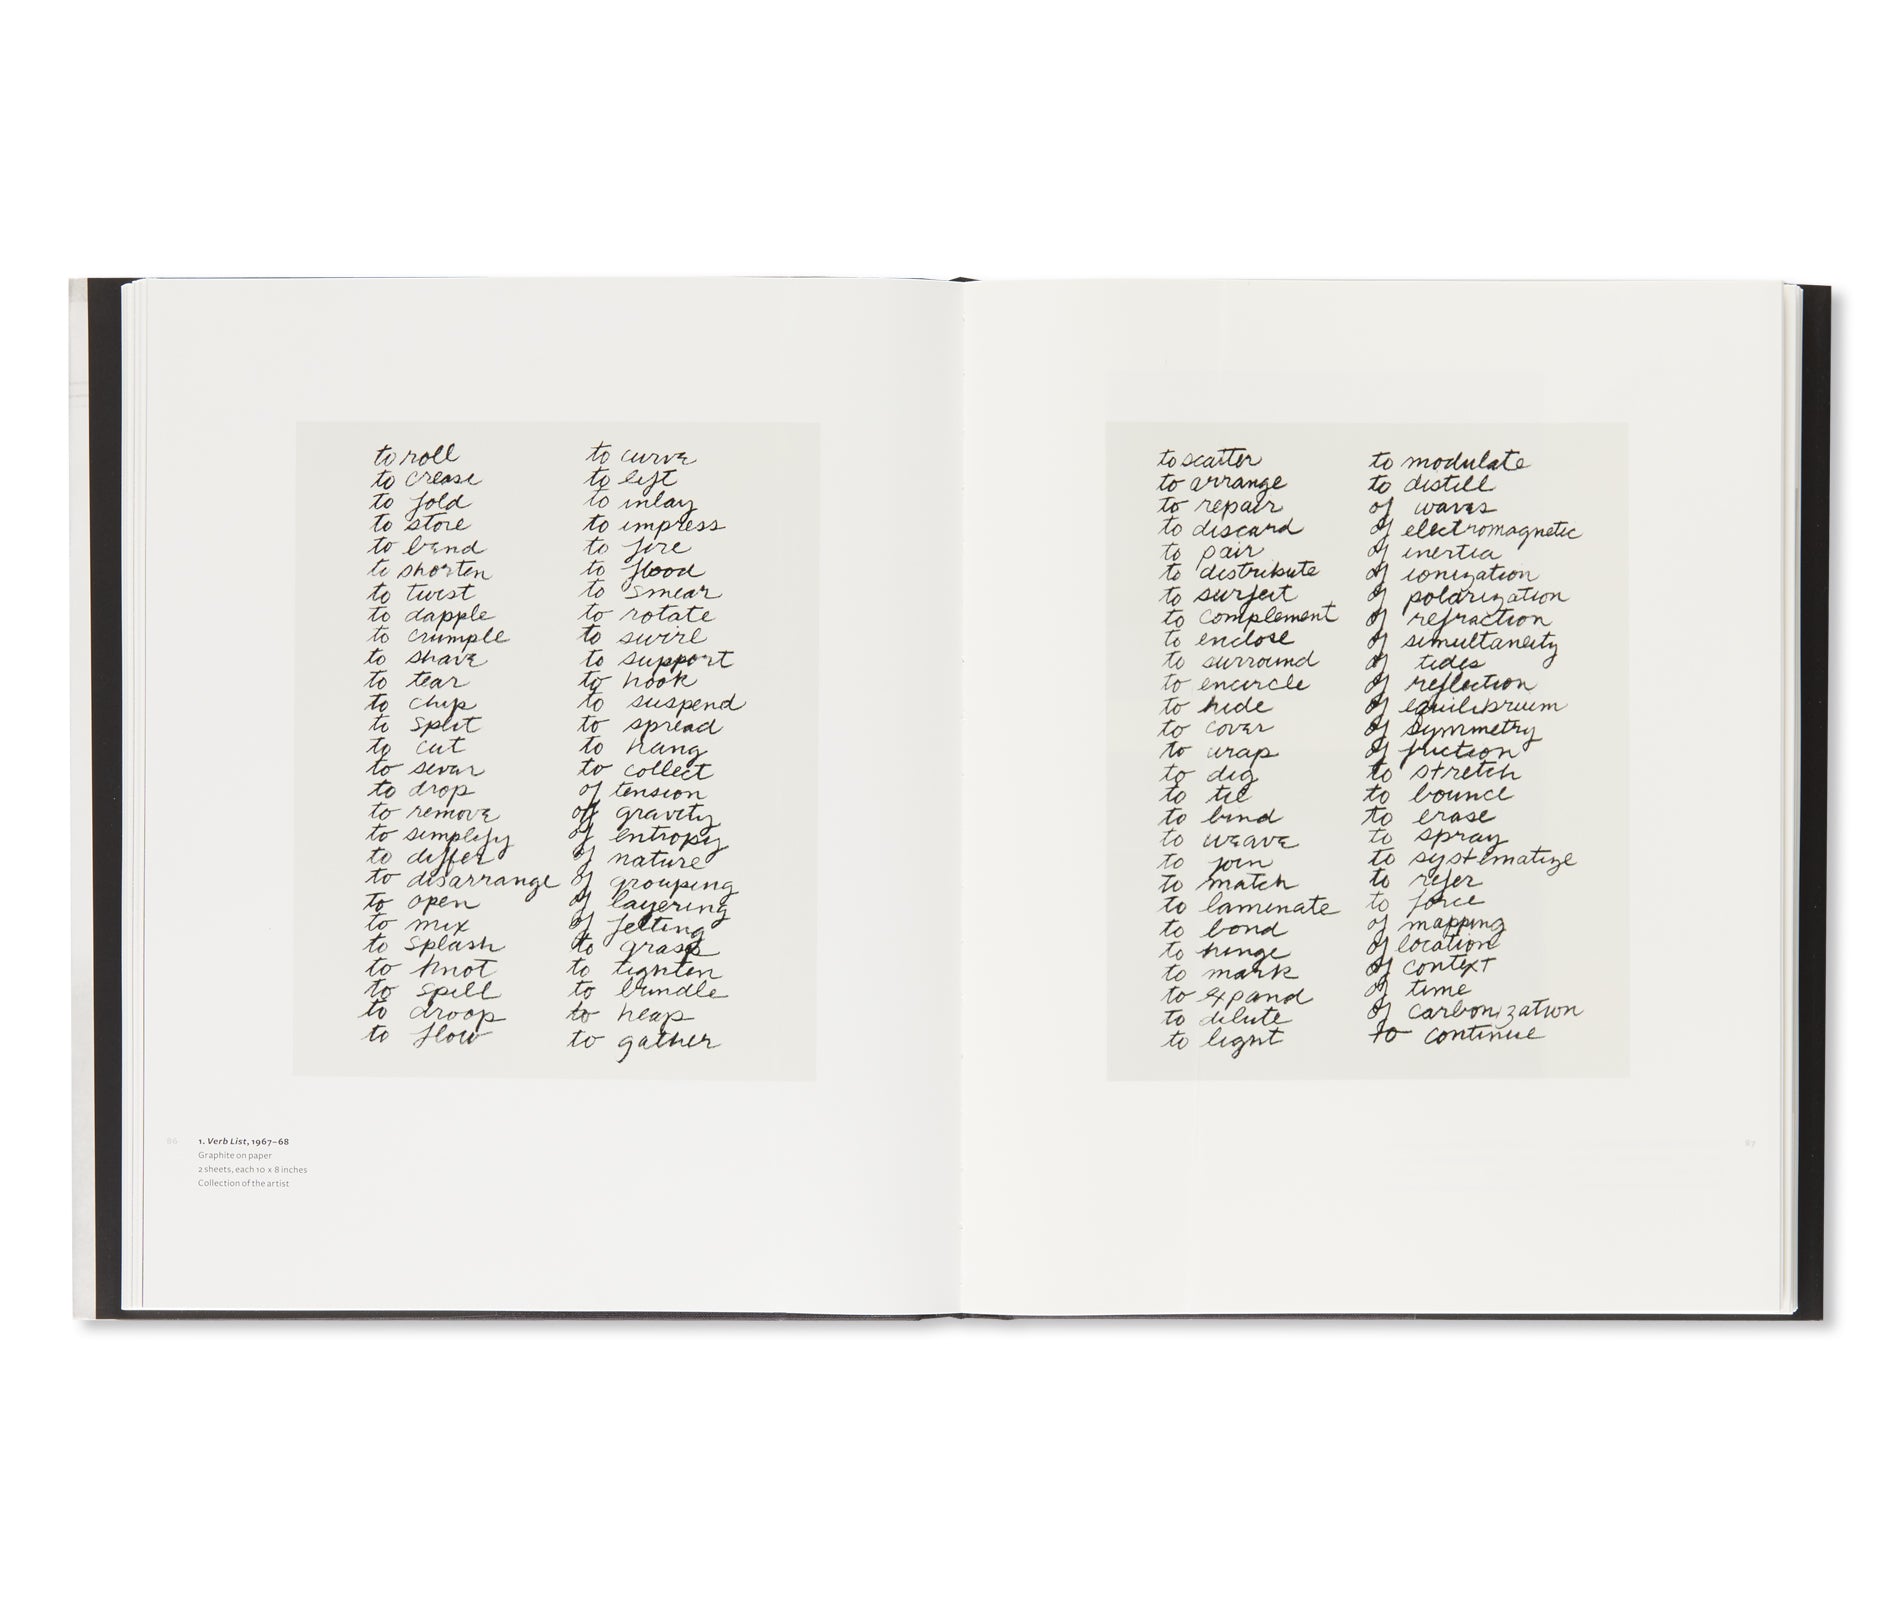 to roll
to crease
to fold
to store
to bend
to shorten
to twist
to dapple
to crumple
to shave
to tear
to chip
to split
to cut
to sever
to drop
to remove
to simplify
to differ
to disarrange
to open
to mix
to splash
to knot
to spill
to droop
to flow
to curve
to lift
to inlay
to impress
to fire
to flood
to smear
to rotate
to swirl
to support
to hook
to suspend
to spread
to hang
to collect
of tension
of gravity
of entropy
of nature
of grouping
of layering
of felting
to grasp
to tighten
to bundle
to heap
to gather
86
1. Verb List, 1967–68
Graphite on paper
2 sheets, each 10 x 8 inches
Collection of the artist
to scatter
to arrange
to repair
to discard
to pair
to distribute
to surfeit
to complement
to enclose
to surround
to encircle
to hide
to cover
to wrap
to dig
to tie
to bind
to weave
to join
to match
to laminate
to bond
to hinge
to mark
to expand
to dilute
to light
to modulate
to distill
of waves
of electromagnetic
of inertia
of ionization
of polarization
of refraction
of simultaneity
of tides
of reflection
of equilibrium
of symmetry
of friction
to stretch
to bounce
to erase
to spray
to systematize
to refer
to force
of mapping
of location
of context
of time
of carbonization
to continue
87